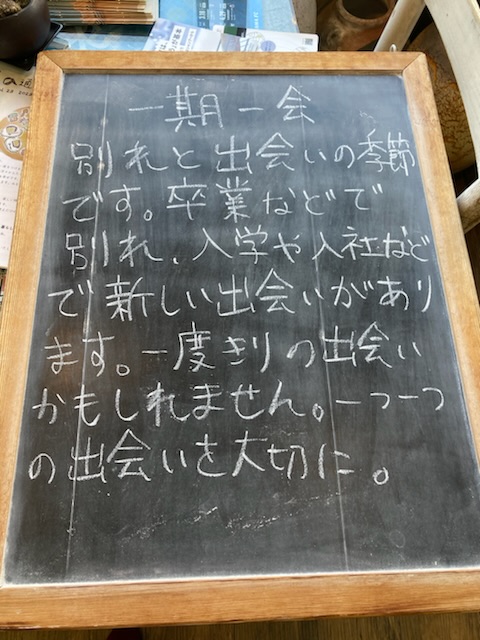 一期一会
別れと出会いの季節
です。卒業などで
別れ、入学や入社など
で新しい出会いがあり
ます。一度きりの出会い
かもしれません。一つ一つ
の出会いを大切に。